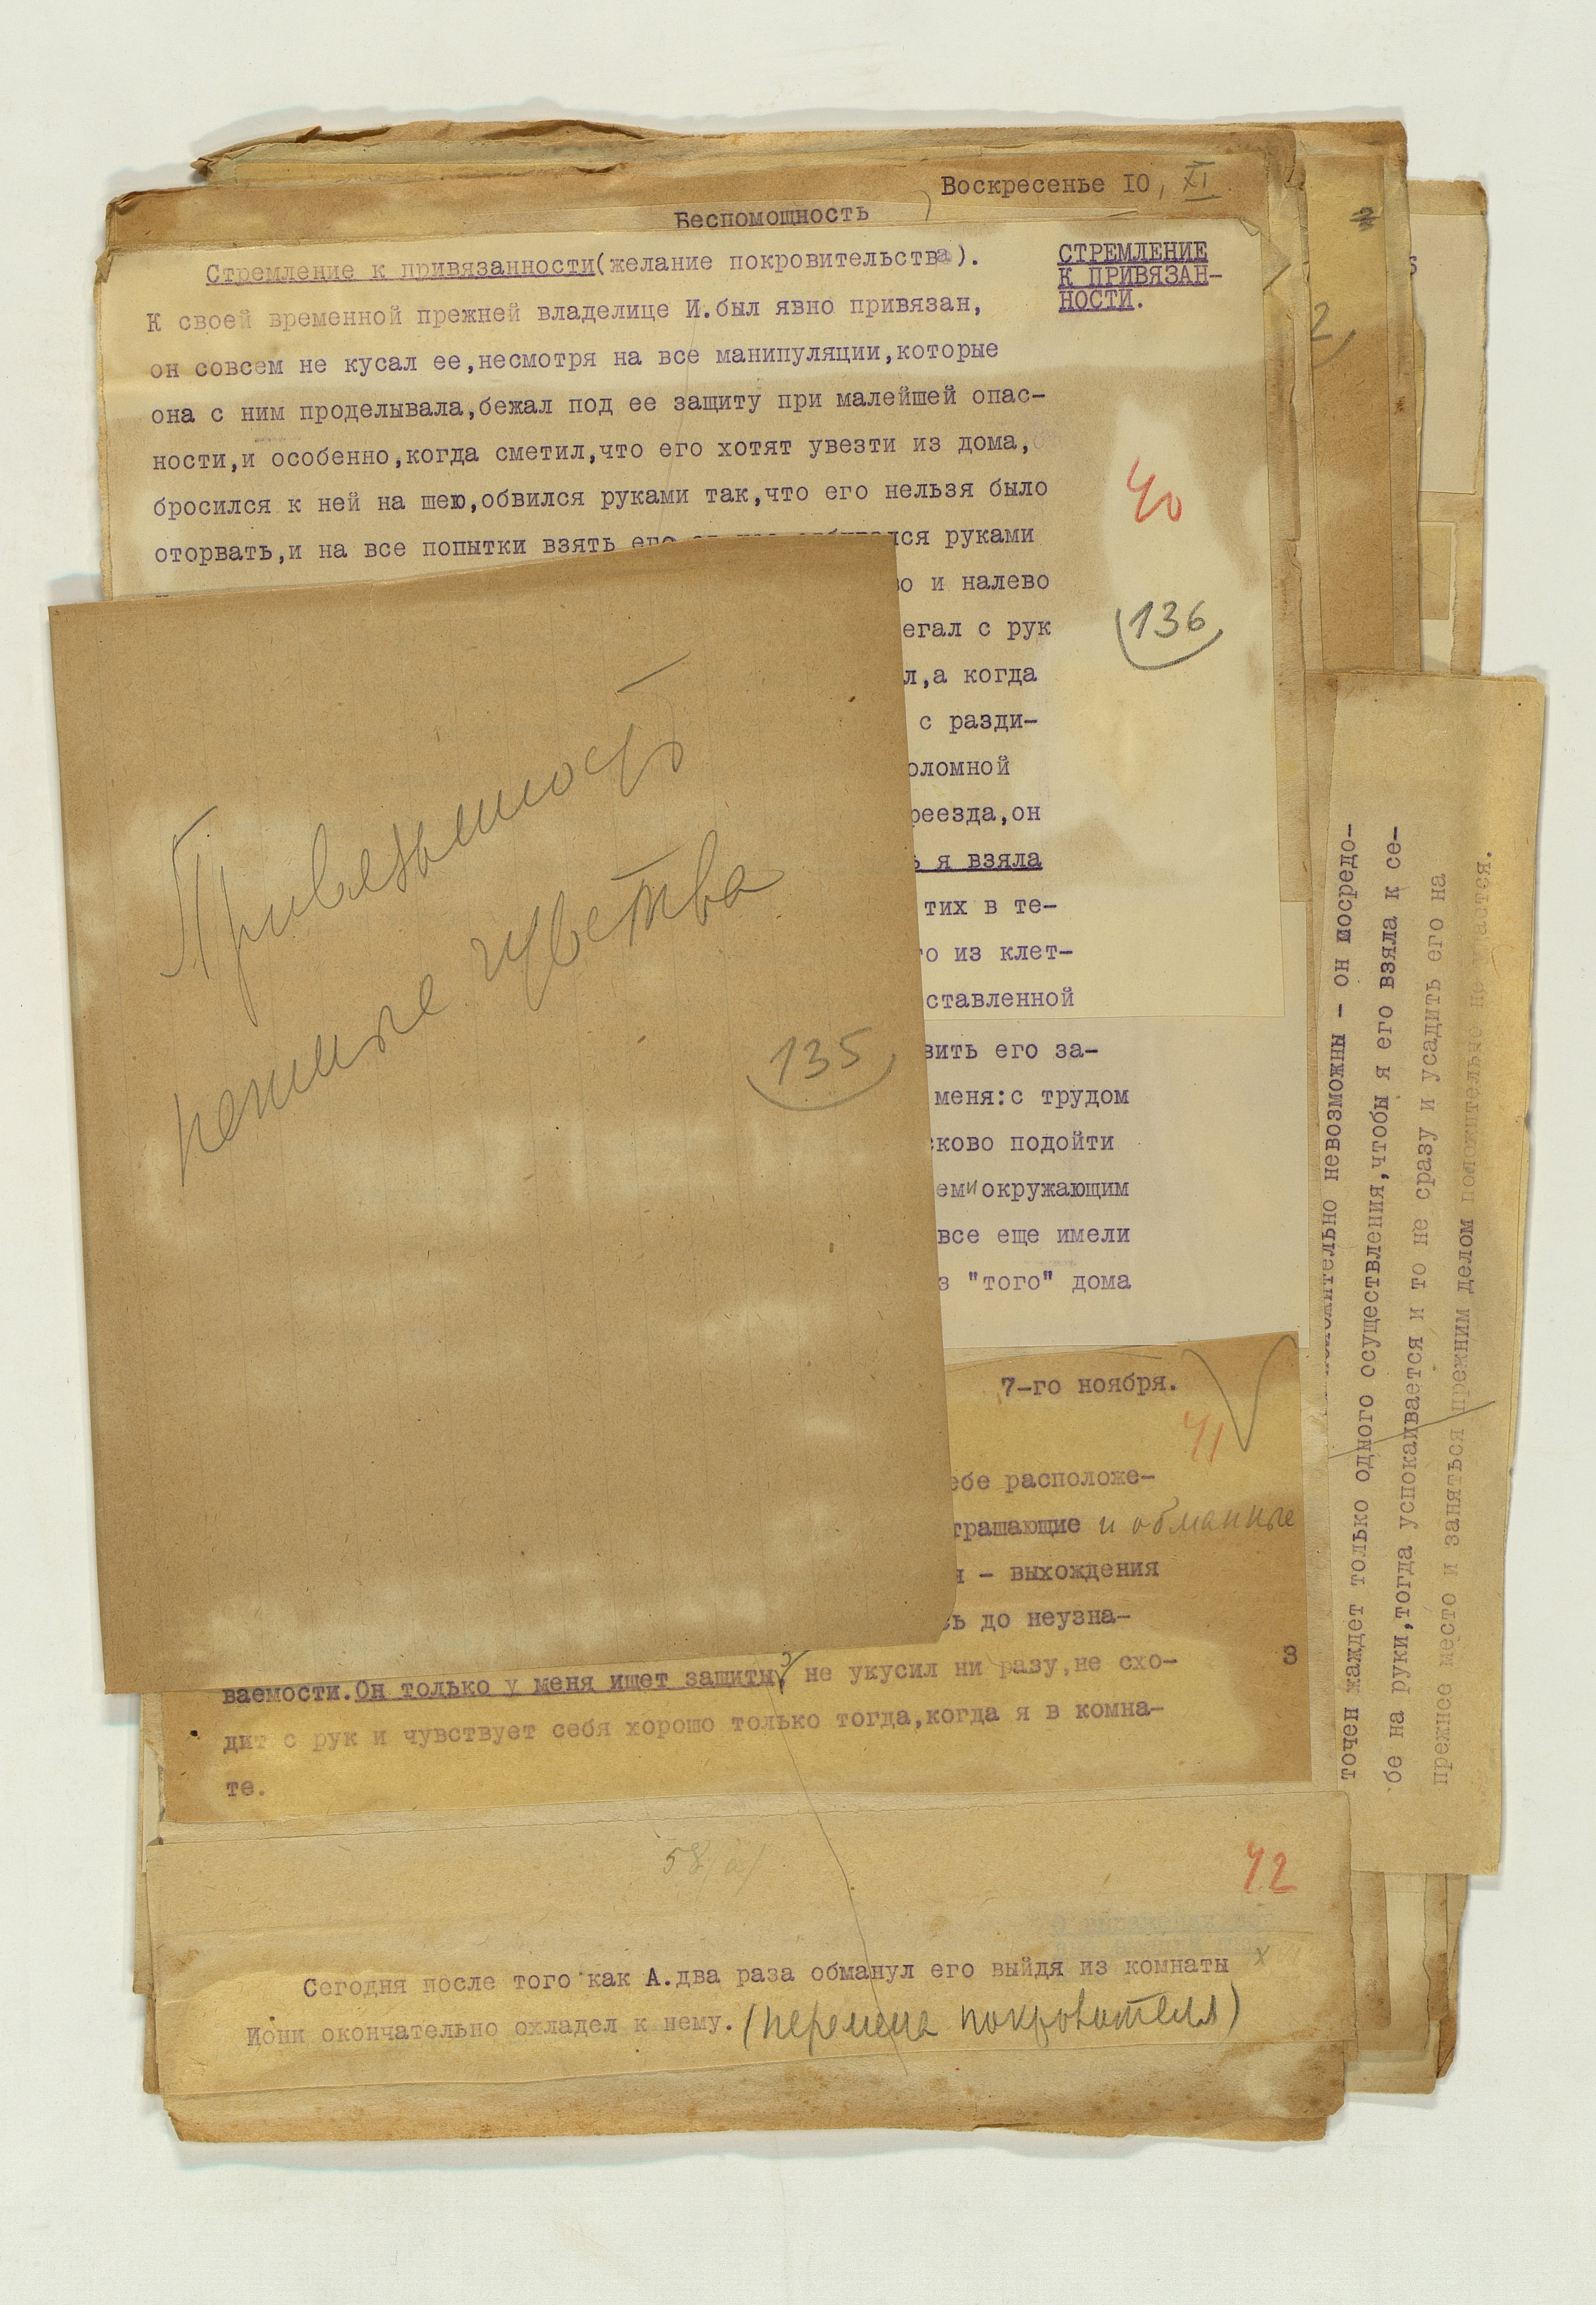 Воскресенье IO, XI
Беспомощность
Стремление к привязанности(желание покровительства).
СТРЕМЛЕНИЕ
К ПРИВЯЗАН-
НОСТИ.
К своей временной прежней владелице И.был явно привязан,
он совсем не кусал ее,несмотря на все манипуляции,которые
она с ним проделывала,бежал под ее защиту при малейшей опас-
ности,и особенно,когда сметил,что его хотят увезти из дома,
бросился к ней на шею,обвился руками так,что его нельзя было
оторвать,и на все попытки взять его руками
40
и налево
136
с рук
а когда
с разди-
он
я взяла
тих в те-
из клет-
его за-
меня:с трудом
подойти
окружающим
все еще имели
"того" дома
Привязанность
нежные чувства
135
7-го ноября.
41
расположе-
и обманные
- выхождения
до неузна-
ваемости.Он только у меня ищет защиты, не укусил ни разу,не схо-
дит с рук и чувствует себя хорошо только тогда,когда я в комна-
те.
3
58
42
Сегодня после того как А.два раза обманул его выйдя из комнаты
Иони окончательно охладел к нему.(перемена покровителя)
2
невозможны - он мосредо-
точен жаждет только одного осуществления,чтобы я его взяла к се-
бе на руки,тогда успокаивается и то не сразу и усадить его на
прежнее место и заняться прежним делом положительно не удастся.